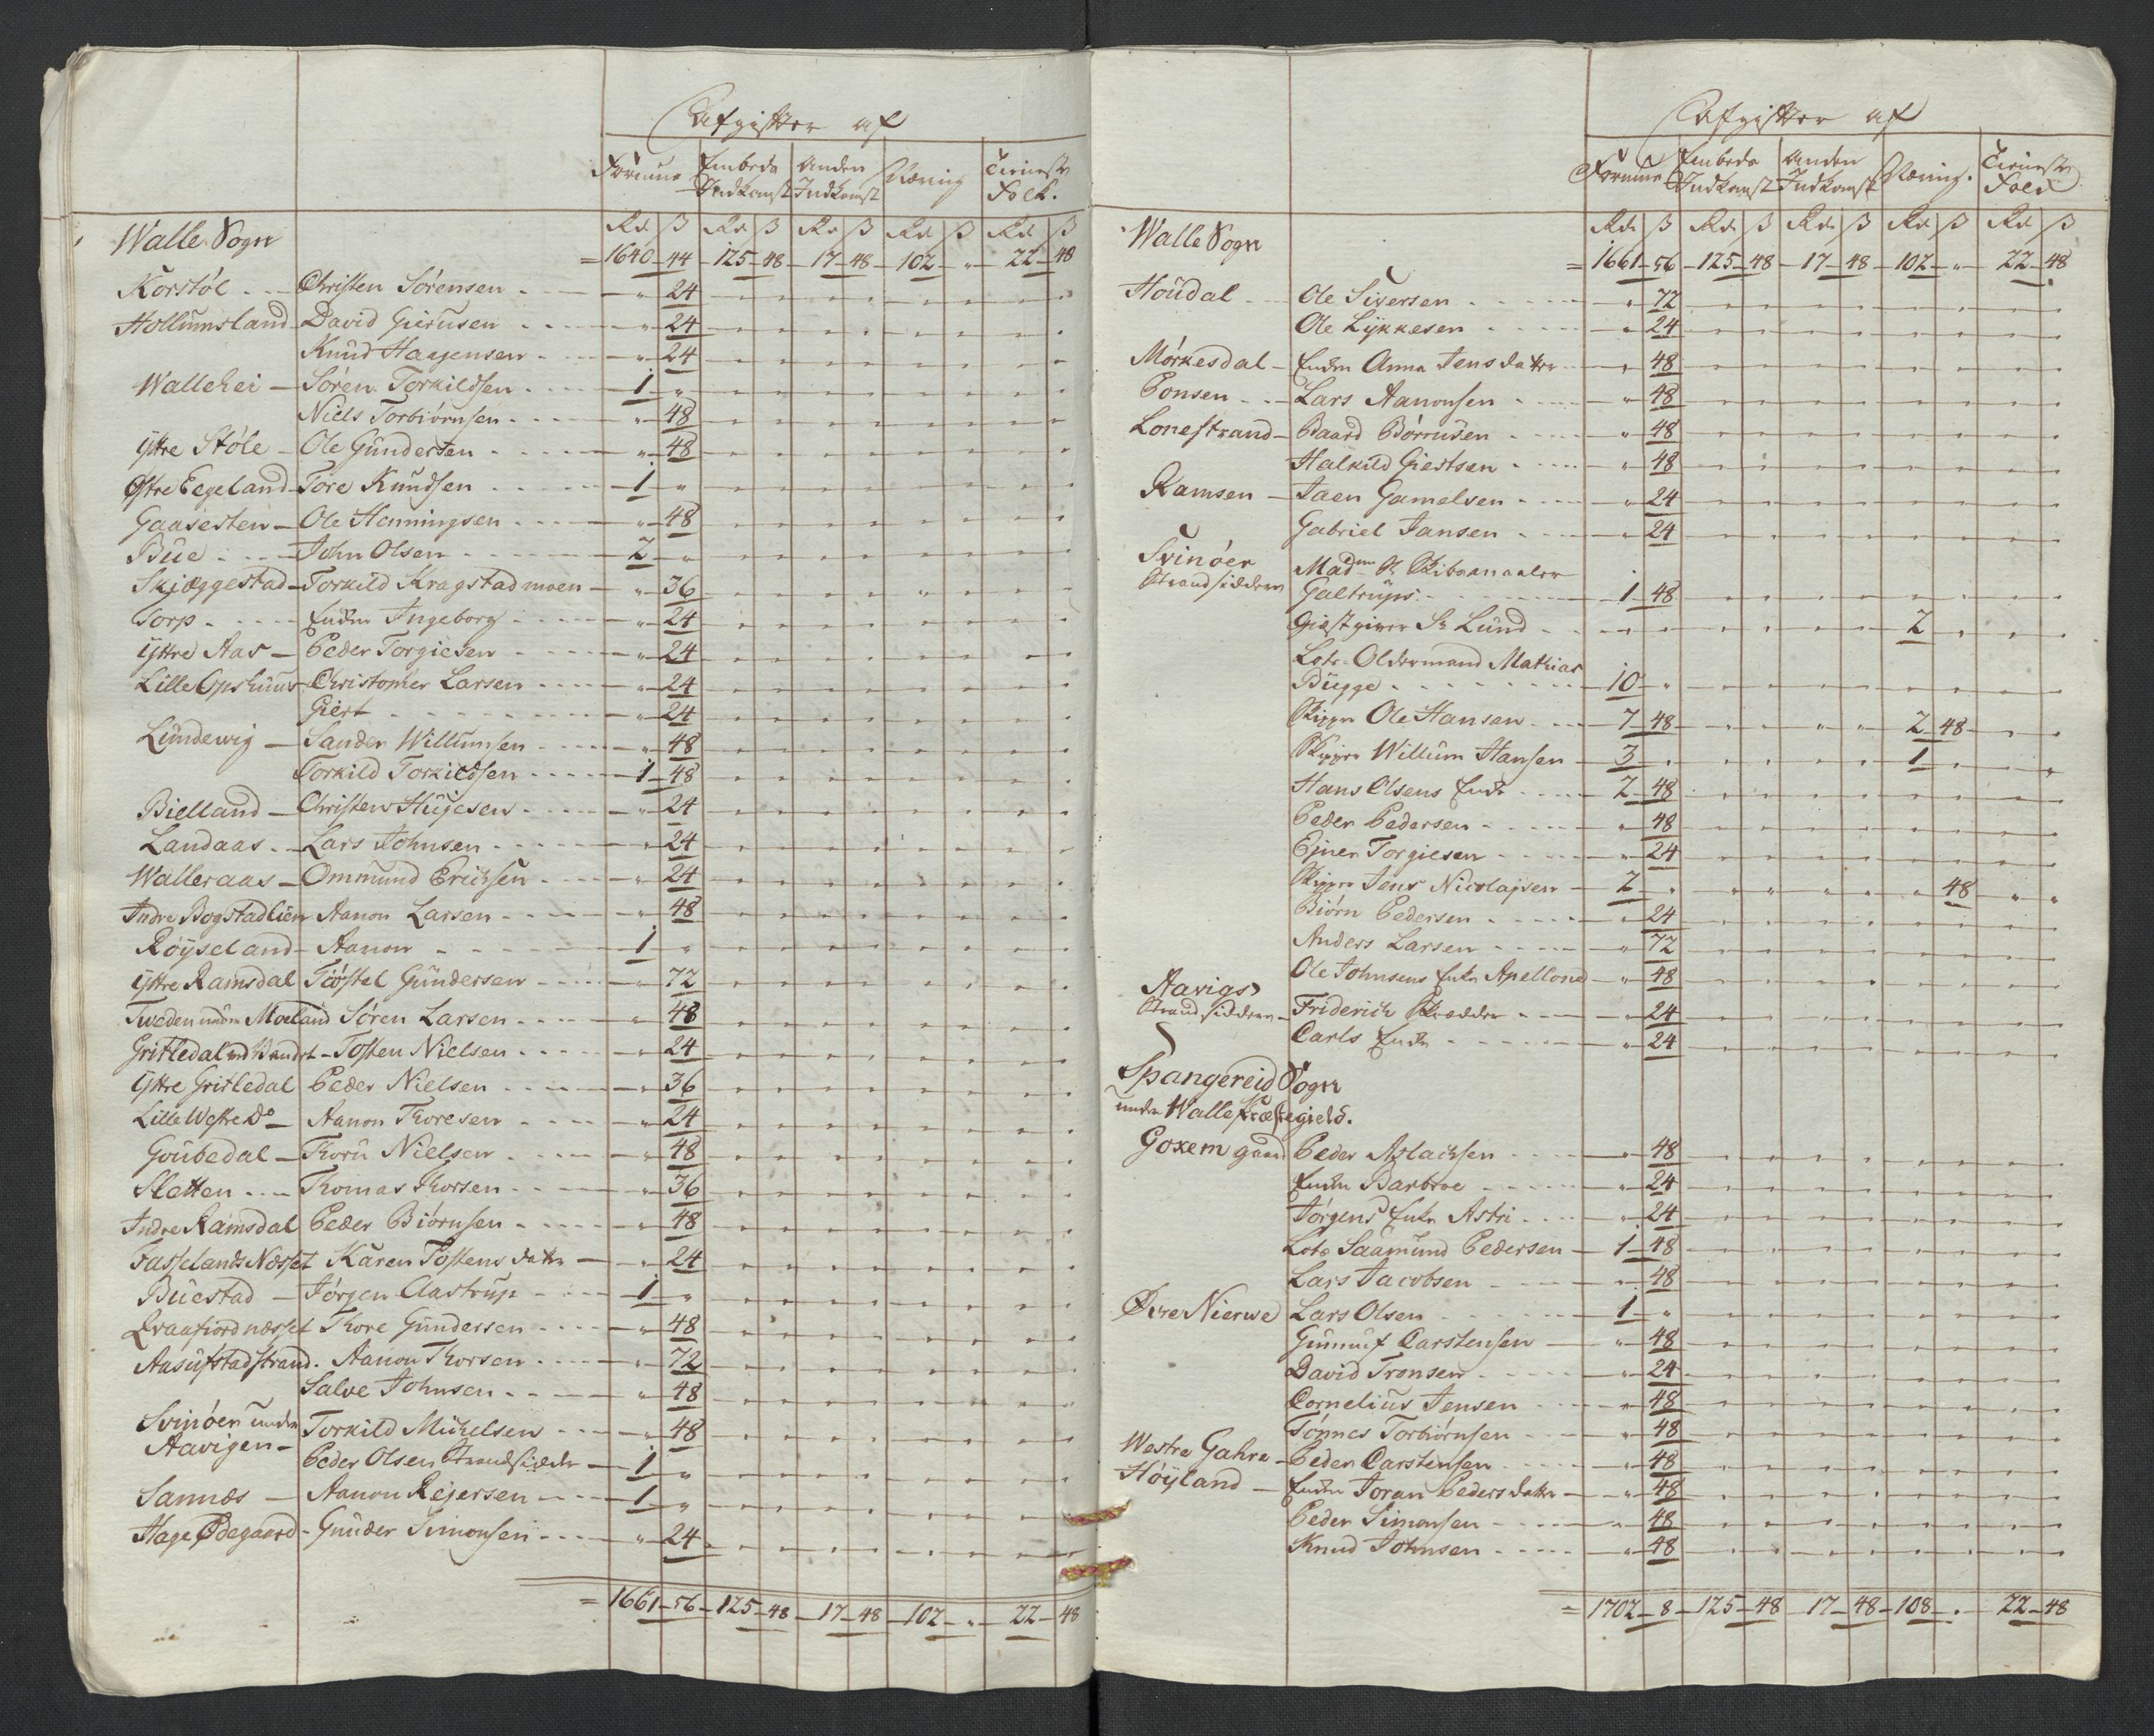 Afgifter af
Formue Embeds Indkomst Anden Indkomst Næring Tieneste Folk.
Walle Sogn Rd ß Rd ß Rd ß Rd ß Rd ß
= 1640 - 44 - 125 - 48 - 17 - 48 - 102 - " - 22 - 48
Korstøl - - Christen Sørensen - - " - 24
Hollumsland - David Gierusen - - " - 24
Knud Haagensen - - " - 24
Wallehei - Søren Torkildsen - - 1 - "
Niels Torbiørnsen - - " - 48
Ÿttre Støle - Ole Gundersen - - " - 48
Østre Eegeland - Tore Knudsen - - 1 - "
Gaasesten - Ole Henningsen - - " - 48
Bue - - John Olsen - - 2 - "
Skiæggestad - Torkild Kragstadmoen - " - 36
Torp - - Enken Ingeborg - - " - 24
Ÿttre Aas - Peder Torgiesen - - " - 24
Lille Opshuus - Christopher Larsen - - " - 24
Giert - - " - 24
Lundewig - Sander Willumsen - - " - 48
Torkild Torkildsen - - 1 - 48
Bielland - Christen Hugesen - - " - 24
Landaas - - Lars Johnsen - - " - 24
Walleraas - Ommund Erichsen - - " - 24
Indre Bogstadlien Aanon Larsen - - " - 48
Røÿseland - Aanon - - 1 - "
Ÿttre Ramsdal Tiøstel Gundersen - - " - 72
Tweden under Moeland Søren Larsen - - " - 48
Gritledal ved Vandet - Tosten Nielsen - - " - 24
Ÿttre Gritledal Peder Nielsen - - " - 36
Lille Westre Do - Aanon Thoresen - - " - 24
Goubedal - Thoru Nielsen - - " - 48
Sletten - - Thomas Thorsen - - " - 36
Indre Ramsdal Peder Biørnsen - - " - 48
Fasselands Næsset Karen Tostens datter - " - 24
Buestad - Jørgen Aastrup - - 1 - "
Qvaafiordnæsset Thore Gundersen - - " - 48
Aasufstadstrand. Aanon Thorsen - - " - 72
Salve Johnsen - - " - 48
Svinøen under Torkild Michelsen - - " - 48
Aavigen - Peder Olsen Strandsidder - 1 - "
Sannæs - Aanon Rejersen - - 1 - "
Hage Ødegaard - Gunder Simonsen - - " - 24
= 1661 - 56 - 125 - 48 - 17 - 48 - 102 - " - 22 - 48
Afgifter af
Formue Embeds Indkomst Anden Indkomst Næring. Tieneste Folk
Walle Sogn Rd ß Rd ß Rd ß Rd ß Rd ß
= 1661 - 56 - 125 - 48 - 17 - 48 - 102 - " - 22 - 48
Houdal - - Ole Siversen - - " - 72
Ole Lÿkkesen - - " - 24
Mørkesdal - Enken Anna Jens datter - " - 48
Ponsen - - Lars Aanonsen - - " - 48
Lonestrand - Baard Børrusen - - " - 48
Halkild Giertsen - - " - 48
Ramsen - Jaen Gamelsen - - " - 24
Gabriel Jansen - - " - 24
Svinøer Madme Sl. Skibsmaaler
Strandsiddere Galtrups - - 1 - 48
Giæstgiver Sr Lund - - 2
Lots-Oldermand Mathias
Bugge - - 10 - "
Skipper Ole Hansen - - 7 - 48 - - 2 - 48
Skipper Willum Hansen - 3 - " - - 1
Hans Olsens Enke - - 2 - 48
Peder Pedersen - - " - 48
Ejner Torgiesen - - " - 24
Skipper Jens Nicolajsen - 2 - " - - " - 48
Biørn Pedersen - - " - 24
Anders Larsen - - " - 72
Ole Johnsens Enke Apellone - " - 48
Aavigs
Strandsiddere - Friderich Skrædder - - " - 24
Carls Enke - - " - 24
Spangereid Sogn
under Walle Præstegield.
Goxem gaard Peder Aslachsen - - " - 48
Enken Barbroe - - " - 24
Jørgens Enke Astri - - " - 24
Lots Saamund Pedersen - 1 - 48
Lars Jacobsen - - " - 48
Øvre Nierwe Lars Olsen - - 1 - "
Gunnuf Carstensen - " - 48
David Tronsen - - " - 24
Cornelius Jensen - - " - 48
Tønnes Torbiørnsen - - " - 48
Westre Gahre - Peder Carstensen - - " - 48
Høÿland - Enken Joran Peders datter - " - 48
Peder Simonsen - - " - 48
Knud Johnsen - - " - 48
= 1702 - 8 - 125 - 48 - 17 - 48 - 108 - " - 22 - 48